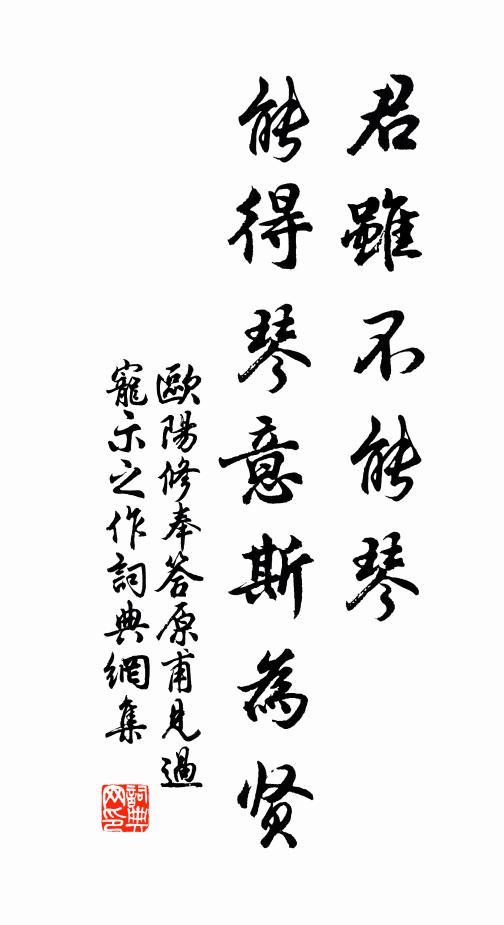 君雖不能琴
能得琴意斯為贤
歐陽修奉答原甫見過
寵示之作詞典網集
詞典网印